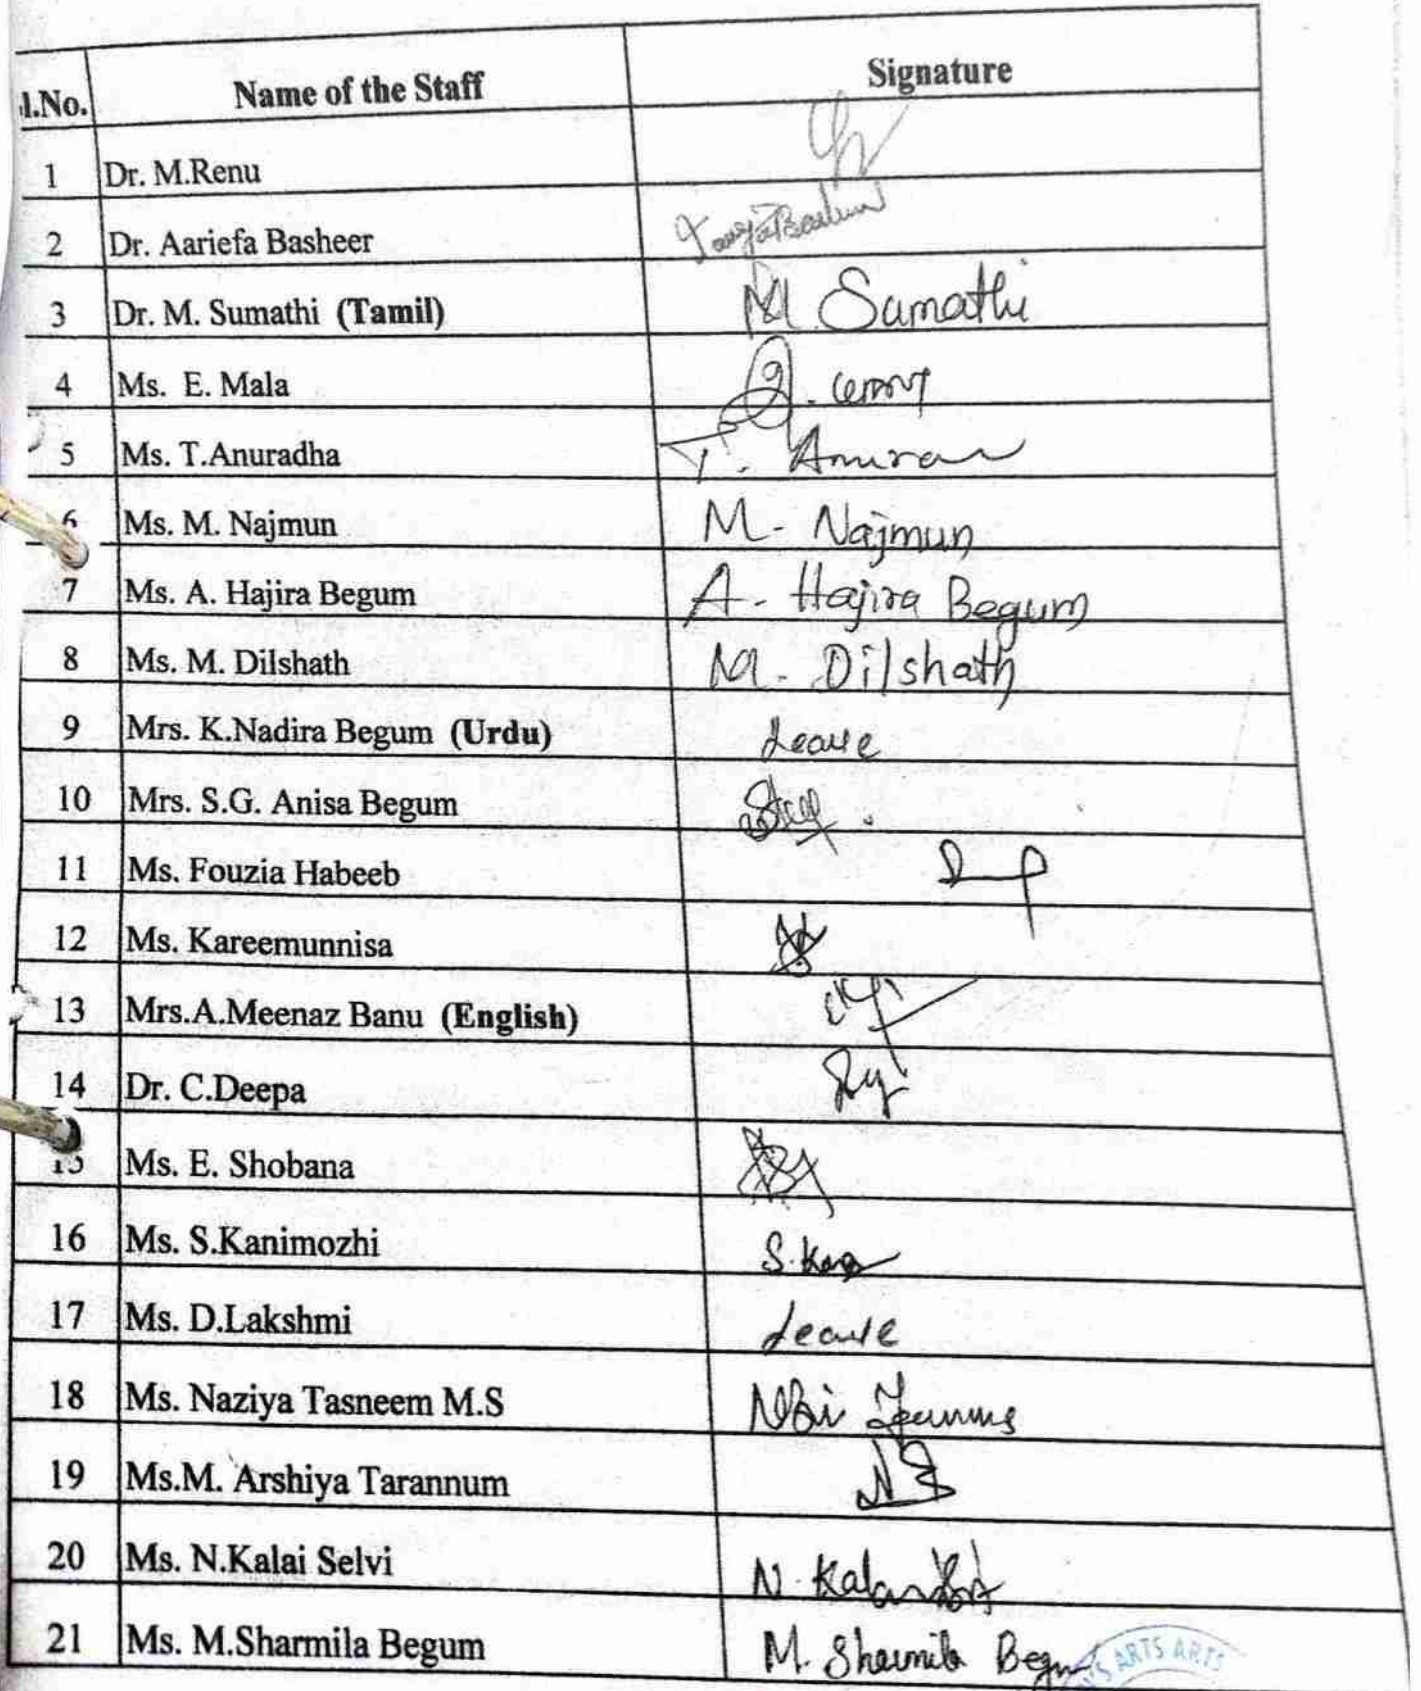 l.No. Name of the Staff Signature
1 Dr. M.Renu
2 Dr. Aariefa Basheer
3 Dr. M. Sumathi (Tamil) M. Sumathi
4 Ms. E. Mala
5 Ms. T.Anuradha T.
6 Ms. M. Najmun M. Najmun
7 Ms. A. Hajira Begum A. Hajira Begum
8 Ms. M. Dilshath M. Dilshath
9 Mrs. K.Nadira Begum (Urdu) Leave
10 Mrs. S.G. Anisa Begum
11 Ms. Fouzia Habeeb
12 Ms. Kareemunnisa
13 Mrs.A.Meenaz Banu (English)
14 Dr. C.Deepa
15 Ms. E. Shobana
16 Ms. S.Kanimozhi
17 Ms. D.Lakshmi Leave
18 Ms. Naziya Tasneem M.S
19 Ms.M. Arshiya Tarannum
20 Ms. N.Kalai Selvi
21 Ms. M.Sharmila Begum M. Sharmila Begum
ARTS ARTS